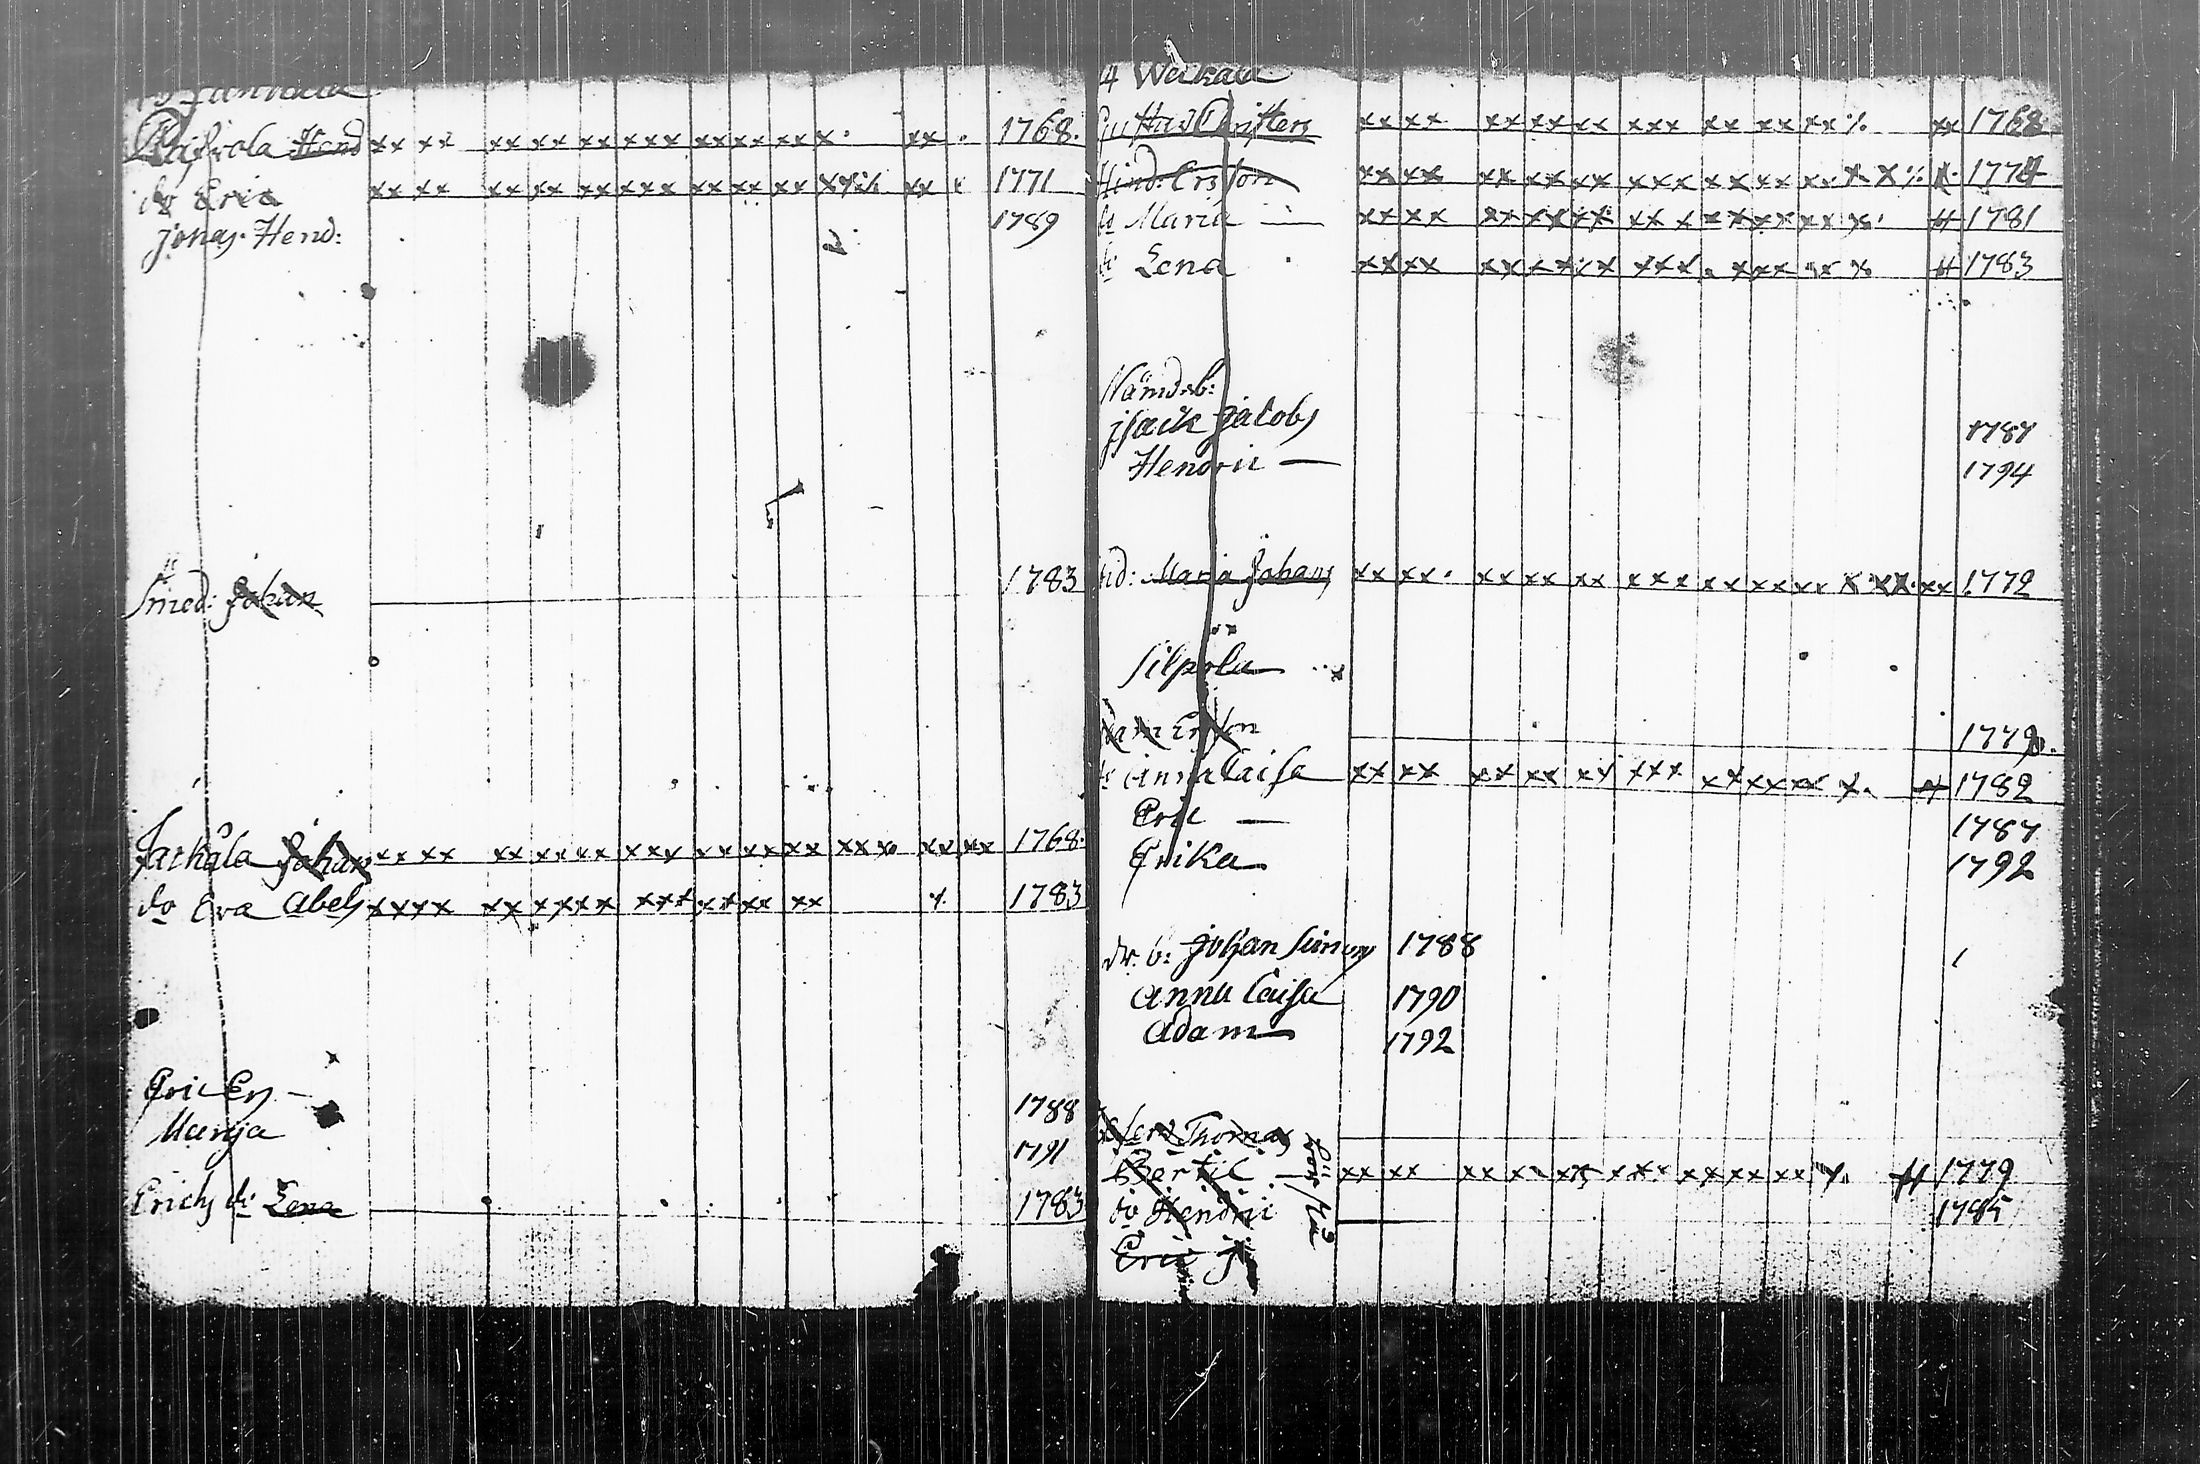 Hend xx xx xx xx xx xxx xx xx xx x. xx . 1768.
do Eric xx xx xx xx xx xxx xx xx xx xx 1771
Jonas Hend: 1789
Smed: Johan 1783
Johan xx xx xx xx xx xxx xx xx xx xxx xx xx 1768.
do Eva Abels xx xx xx xx xx xxx xx xx xx x. 1783
Eric Ers — 1788
Marija 1791
Erichs dr Lena 1783
4
Gustav Christers xx xx xx xx xx xxx xx xx xx xx 1768
Hind: Ersson xx xx xx xx xx xxx xx xx xx x x 1774
dr Maria — xx xx xx xx xx xx x xx xx xx x. 1781
dr Lena xx xx xx xx xx xxx xxx xx x 1783
Nämdeb:
Jsack Jacobs 1787
Hendric — 1794
Maria Johans xx xx. xx xx xx xxx xx xx xx x xx. xx 1772
Silpola
Ersson 1779.
dr Anna Caisa xx xx xx xx xx xxx xx xx xx x. 1782
Eric — 1787
Erika 1792
dr. b: Johan Simons 1788
Anna Caisa 1790
Adam 1792
Thomas
Bertil — xx xx xx x xx xxx xx xx xx x. 1779
do Hendric 1785
Eric J